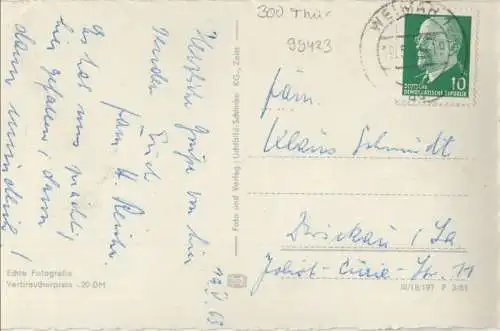 300 Thür
95423
WEIMAR 1
10
DEUTSCHE
DEMOKRATISCHE REPUBLIK
Herzliche Grüße von hier
senden Euch
Fam. H.
Es hat uns prächtig
hier gefallen, dann
dann mündlich!
17.V.63
Foto und Verlag: Lichtbild-Schincke KG., Zeitz
Fam.
Klaus Schmidt
Zwickau / Sa
Joliot-Curie-Str. 11
Echte Fotografie
Verbraucherpreis -.20 DM
III/18/197 P 3/63